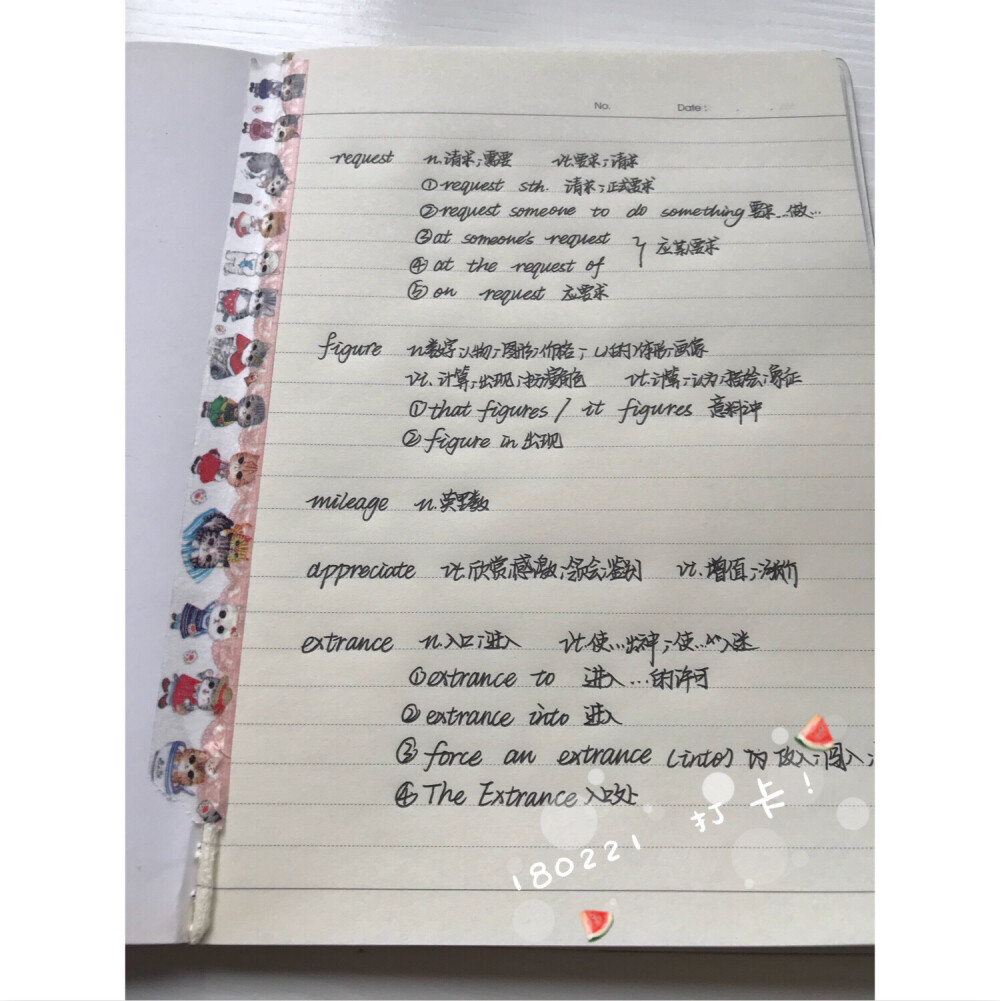 No. Date:
request n.请求;需要 vt.要求;请求
①request sth. 请求;正式要求
②request someone to do something 要求...做...
③at someone's request } 应某要求
④at the request of
⑤on request 应要求
figure n.数字;人物;图形;价格;(人的)体形;画像
vi.计算;出现;扮演角色 vt.计算;认为;描绘;象征
①that figures / it figures 意料冲
②figure in 出现
mileage n.英里数
appreciate vt.欣赏;感激;领会;鉴别 vi.增值;涨价
extrance n.入口;进入 vt.使...出神;使...入迷
①extrance to 进入...的许可
②extrance into 进入
③force an extrance (into) 攻入;闯入;
④The Extrance 入口处
180221 打卡!